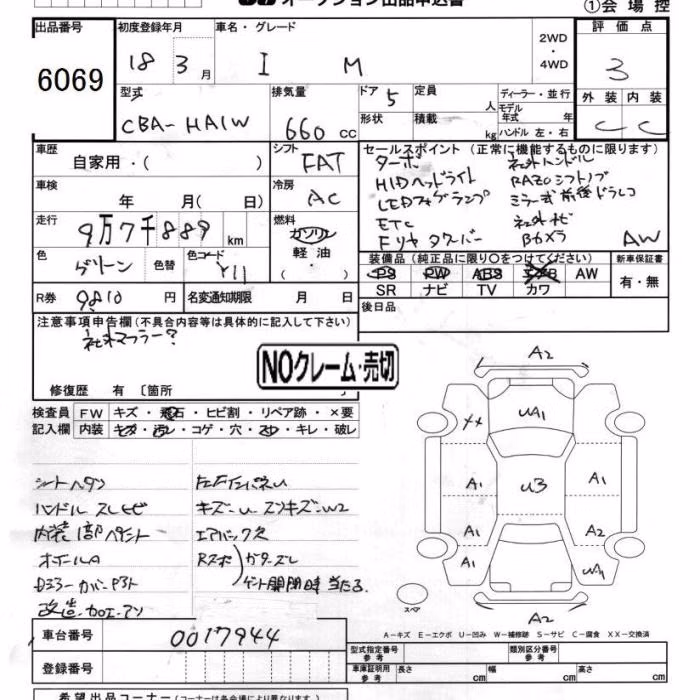 オークション出品申込書
①会場控
出品番号
6069
初度登録年月
18 3月
車名・グレード
I M
2WD
・
4WD
評価点
3
外装 内装
C C
型式
CBA-HA1W
排気量
660 cc
ドア 5
形状
定員 人
積載 kg
ディーラー・並行
モデル年式 年
ハンドル 左・右
車歴
自家用・( )
シフト
FAT
車検
年 月( 日)
冷房
AC
走行
9万7千889 km
燃料
ガソリン
軽油
・
( )
色
グリーン
色替
色コード
Y11
R券
9810 円
名変通知期限 月 日
セールスポイント (正常に機能するものに限ります)
ターボ 社外ハンドル
HIDヘッドライト RAZOシフトノブ
LEDフォグランプ ミラー式前後ドラレコ
ETC 社外ナビ
Fリヤタワーバー Bカメラ AW
装備品 (純正品に限り○をつけてください)
PS PW ABS エアB AW
SR ナビ TV カワ
新車保証書
有・無
後日品
注意事項申告欄(不具合内容等は具体的に記入して下さい)
社外マフラー?
修復歴 有 〔箇所
NOクレーム・売切
検査員記入欄
FW キズ・飛石・ヒビ割・リペア跡・×要
内装 キズ・汚レ・コゲ・穴・スレ・キレ・破レ
シートヘタリ
ハンドル スレ
内装1部ペイント
オイルA
改造・加工
キズ・U
エアバック
ゲート開閉時当たる
A2
××
UA1
A1
U3
A1
A1
A2
A1
A2
スペア
A-キズ E-エクボ U-凹み W-補修跡 S-サビ C-腐食 XX-交換済
車台番号
0017944
登録番号
型式指定番号
参考
類別区分番号
参考
車庫証明用
参考
長さ cm
幅 cm
高さ cm
希望出品コーナー(コーナーは各会場により異なります。)